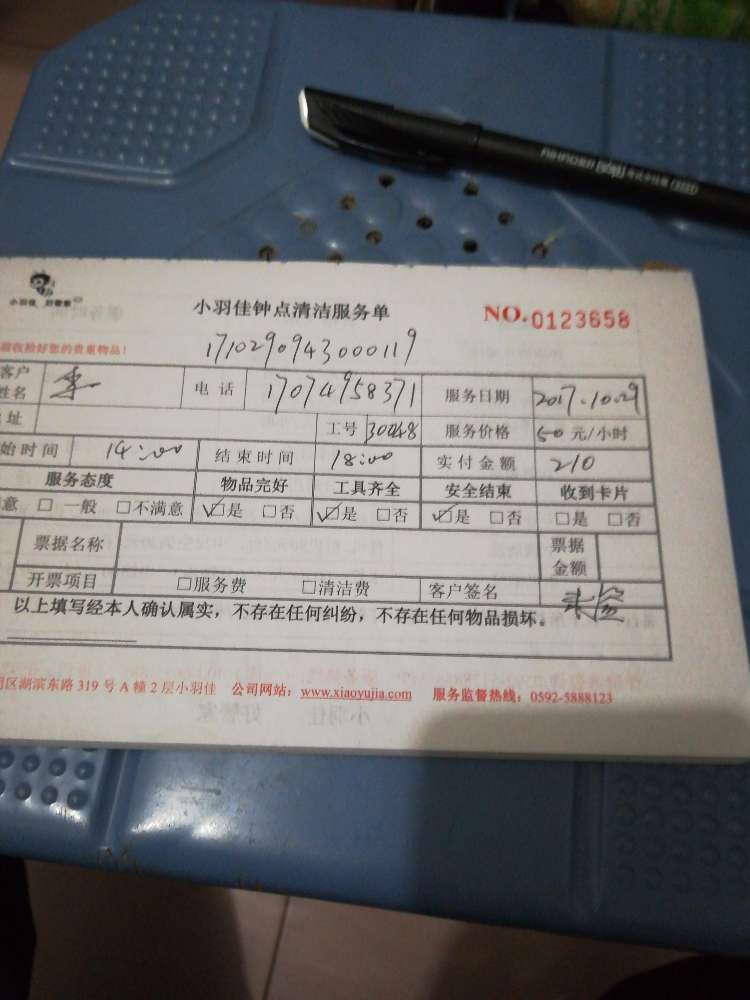 小羽佳 好管家
小羽佳钟点清洁服务单
NO.0123658
验收拾好您的贵重物品!
171029094300119
客户姓名 李 电话 17074958371 服务日期 2017.10.29
址 工号 30048 服务价格 50 元/小时
始时间 14:00 结束时间 18:00 实付金额 210
服务态度 物品完好 工具齐全 安全结束 收到卡片
意 □ 一般 □不满意 ☑是 □否 ☑是 □否 ☑是 □否 □是 □否
票据名称 票据金额
开票项目 □服务费 □清洁费 客户签名
以上填写经本人确认属实，不存在任何纠纷，不存在任何物品损坏。
区湖滨东路 319 号 A 幢 2 层小羽佳 公司网站：www.xiaoyujia.com 服务监督热线：0592-5888123